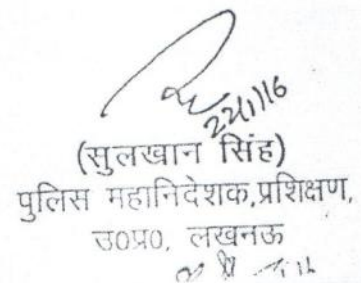 22/1/16
(सुलखान सिंह)
पुलिस महानिदेशक,प्रशिक्षण,
उ0प्र0, लखनऊ